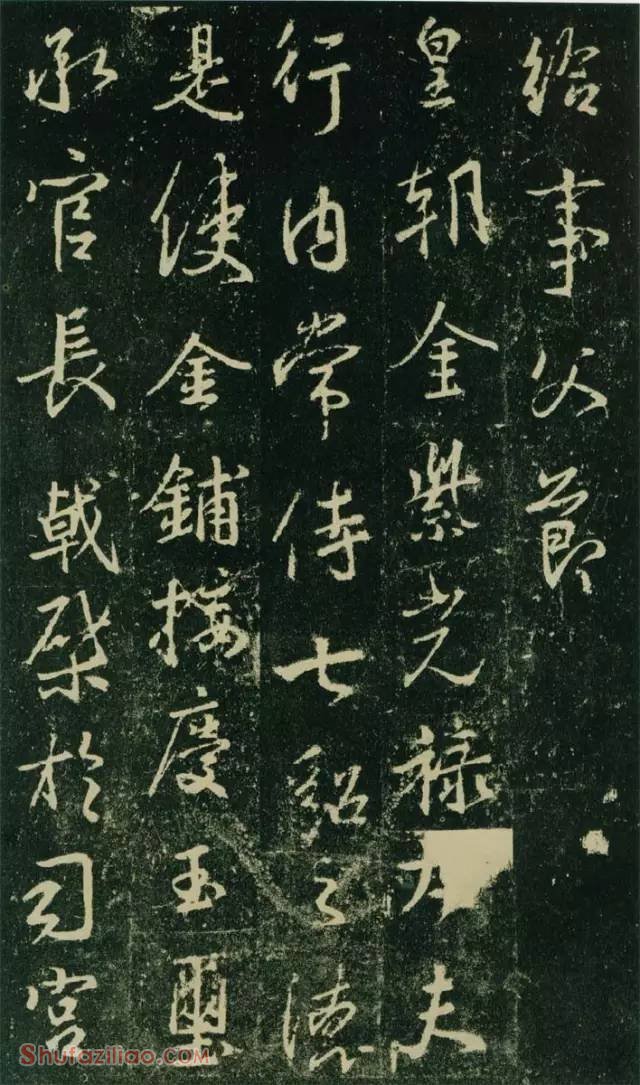 給事父節
皇朝金紫光祿大夫
行内常侍七貂之德
是使金鋪接慶玉璽
承官長戟棨於司宮
Shufaziliao.COM